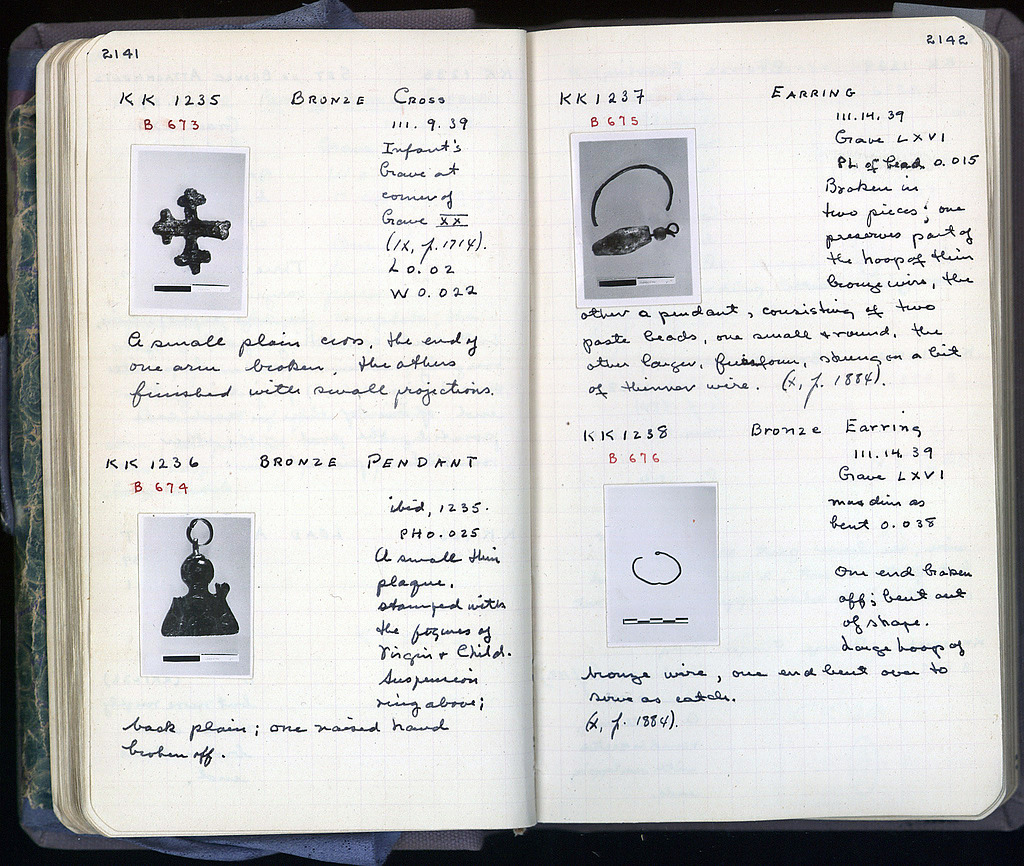 2141
KK 1235 BRONZE CROSS
B 673
III. 9. 39
Infant's
Grave at
corner of
Grave XX
(IX, p. 1714).
L 0.02
W 0.022
A small plain cross, the end of
one arm broken, the others
finished with small projections.
KK 1236 BRONZE PENDANT
B 674
ibid, 1235.
PH 0.025
A small thin
plaque,
stamped with
the figures of
Virgin + Child.
Suspension
ring above;
back plain; one raised hand
broken off.
2142
KK 1237 EARRING
B 675
III. 14. 39
Grave LXVI
PL of bead 0.015
Broken in
two pieces; one
preserves part of
the hoop of thin
bronze wire, the
other a pendant, consisting of two
paste beads, one small + round, the
other larger, fusiform, strung on a bit
of thinner wire. (X, p. 1884).
KK 1238 Bronze Earring
B 676
III. 14. 39
Grave LXVI
max dim as
bent 0.038
One end broken
off; bent out
of shape.
Large hoop of
bronze wire, one end bent over to
serve as catch.
(X, p. 1884).